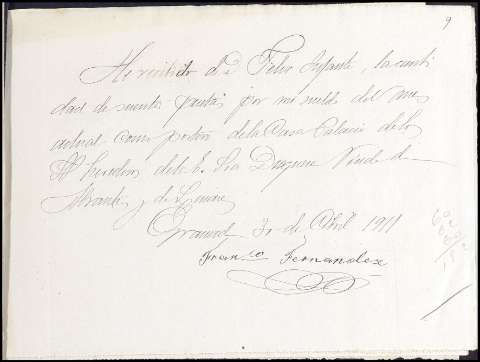 9
He recibido de Dn Felix Infante, la canti
dad de pesetas por mi sueldo del mes
actual como portero de la Casa Palacio de los
Herederos de la E. Sra Duquesa Viuda de
Abrantes y de Linares
Granada 30 de Abril 1911
Franco Fernandez